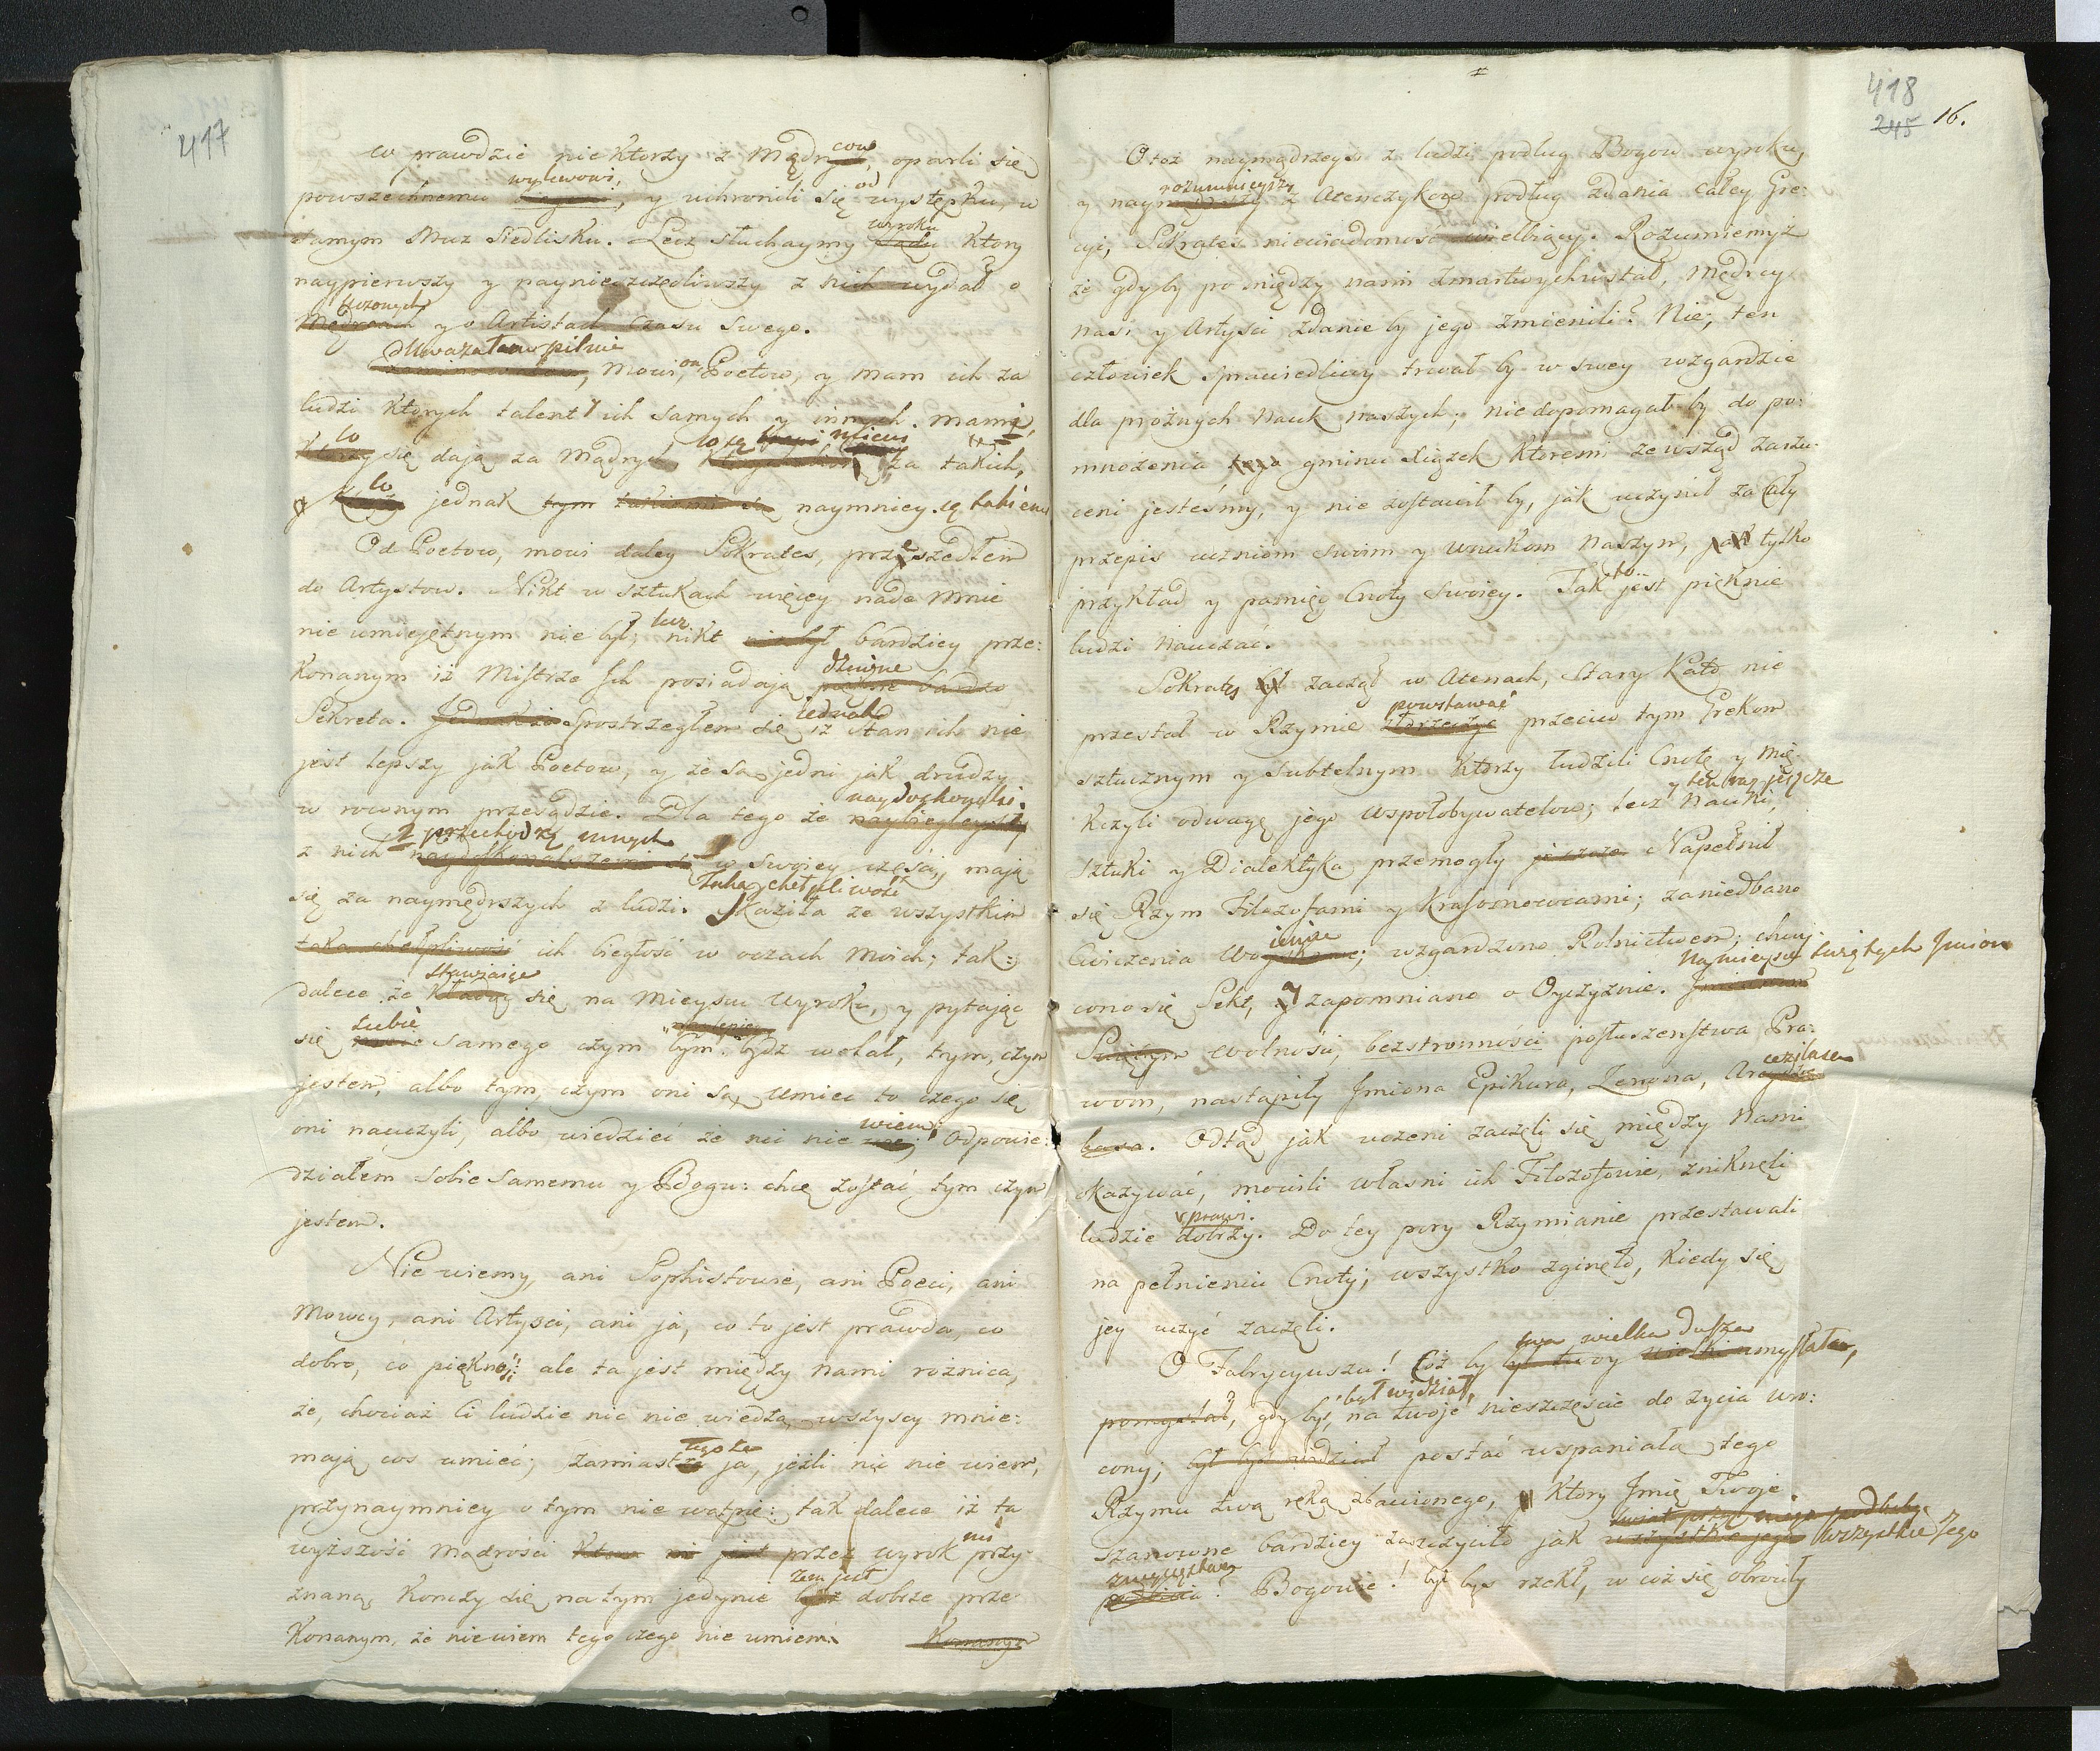 417
w prawdzie niektorzy z Mędrcow, oparli się
wylewowi, od
powszechnemu y uchronili się występku, w
samym Muz Siedlisku. Lecz słuchaymy wyroku Ktory
naypierwszy y naynieszczęśliwszy z nich wydał o
Uczonych
Mędrcach y o Artistach Czasu Swego.
Uwazałem pilnie
Mowi, on Poetow, y mam ich za
ludzi Ktorych talent ich samych y innych mami,
co są
Ktorzy się dają za Mądrych, za takich,
co
y Ktorzy jednak tym takiemi są naymniey są takiemi
Od Poetow, mowi daley Sokrates, przeszedłem
do Artystow. Nikt w Sztukach więcey nade mnie
nieumiejętnym nie był; tuz nikt nie był bardziey prze:
Konanym iż Mistrze Ich posiadają dziwne
Sekreta. Jednakże Spostrzegłem się jednak iż Stan ich nie
jest lepszy jak Poetow, y że są jedni jak drudzy
w rownym przesądzie. Dla tego że naybiegleysi naydoskonalsi
przechodzą innych
z nich naydoskonalszemi są w swojey części, mają
się za naymędrszych z ludzi. Taka chełpliwość Skaziła ze wszystkim
taka chełpliwość ich biegłość w oczach Moich; tak:
dalece że Kładąc stawiaiąc się na Mieyscu Wyroku, y pytając
się siebie samego czym bym bydz wolał, tym, czym
jestem, albo tym, czym oni są, umieć to czego się
oni nauczyli, albo wiedzieć że nic nie wiem; odpowie:
działem sobie samemu y Bogu: chcę zostać tym czym
jestem.
Nie wiemy, ani Sophistowie, ani Poeci, ani
Mowcy, ani Artysci, ani ja, co to jest prawda, co
dobro, co piękność: ale ta jest między nami roznica,
że, chociaż Ci ludzie nic nie wiedzą, wszyscy mnie:
mają cos umieć; zamiast że ja, jeżli nic nie wiem,
przynaymniey o tym nie wątpię: tak dalece iż ta
wyższość mądrości Ktora mi jest przez wyrok mi przy
znana, Kończy się na tym jedynie żem jest dobrze prze
Konanym, że niewiem tego czego nie umiem. Konanym
418
245 16.
Otoż naymędrszys z ludzi podług Bogow wyroku,
rozumnieyszy
y naymędrszy z Atenczykow podług zdania Całey Gre:
cyi, Sokrates niewiadomość uwielbiący. Rozumiemyż
że gdyby po między nami zmartwychwstał, Mędrcy
nasi y Artysci zdanie by jego zmienili? Nie; ten
człowiek sprawiedliwy trwał by w swey wzgardzie
dla prożnych Nauk naszych; nie dopomagał by do po:
mnożenia tego gminu Xiążek Któremi ze wsząd zarzu
ceni jesteśmy, y nie zostawił by, jak uczynił za Cały
przepis uczniom swoim y wnukom Naszym, jak tylko
przykład y pamięć Cnoty swoiey. Tak to jest pięknie
ludzi Nauczać.
Sokrates zaczął w Atenach, Stary Kato nie
przestał w Rzymie powstawać przeciw tym Grekom
sztucznym y subtelnym Ktorzy łudzili Cnotę y mię
Kczyli odwagę jego wspołobywatelow; lecz y ten raz jeszcze Nauki,
Sztuki y Dialektyka przemogły jeszcze Napełnił
się Rzym Filozofami y Krasomowcami; zaniedbano
Cwiczenia Wojenne; wzgardzono Rolnictwem; chwy:
cono się Sekt, y zapomniano o Oyczyznie. Na mieysce świętych Imion
Świętym wolności, bezstronności posłuszeństwa Pra:
wom, nastąpiły Imiona Epikura, Zenona, Arcezilasa
Odtąd jak uczeni zaczęli się między Nami
okazywać, mowili własni ich Filozofowie, zniknęli
ludzie dobrzy. prawi. Do tey pory Rzymianie przestawali
na pełnieniu Cnoty; wszystko zginęło, Kiedy się
jey uczyć zaczęli.
O Fabrycyuszu! Coż by twa wielka dusza umysł
pomyślał, gdybyś, był widział, na twoje nieszczęście do życia wro:
cony; był był widział postać wspaniałą tego
Rzymu twą ręką zbawionego, y Ktory Imię Twoje
szanowne bardziey zaszczyciło jak wszystkie jego
zwycięstwa
podbicia! Bogowie! był byś rzekł, w coż się obrociły